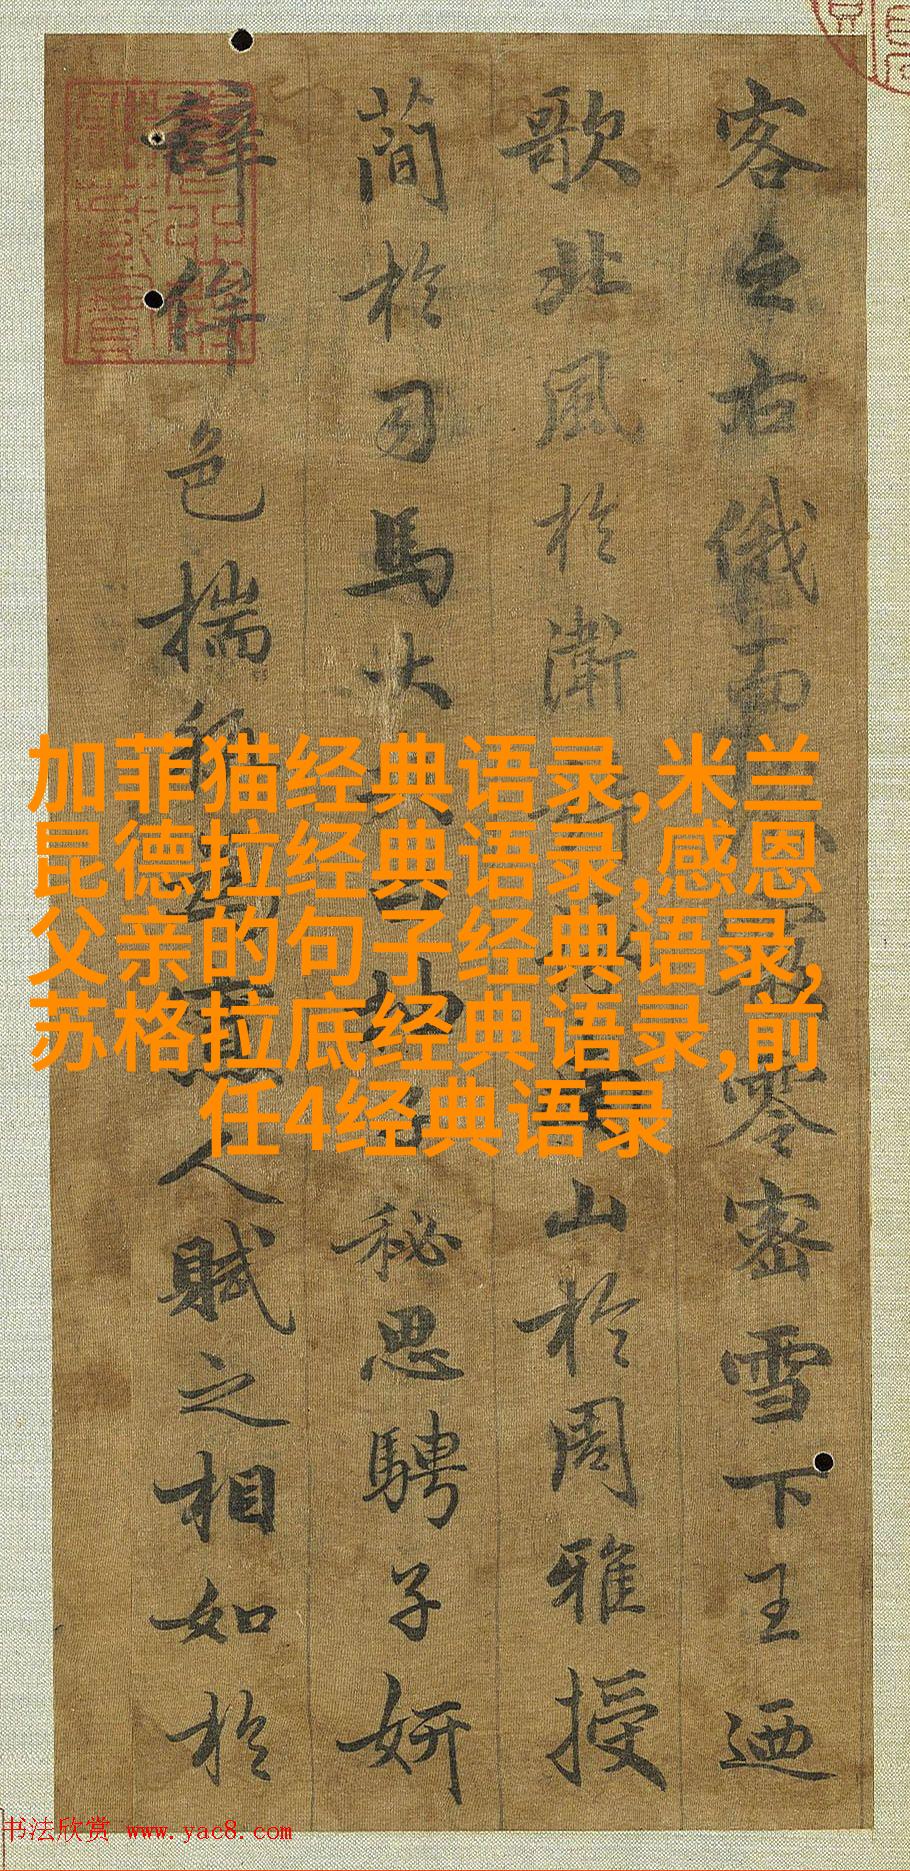 客之右俄而零密雪下王迺
歌北風於衛山於周雅授
蕳於司馬大秘思騁子妍
辭侔色揣人賦之相如於
加菲猫经典语录,米兰
昆德拉经典语录,感恩
父亲的句子经典语录,
苏格拉底经典语录,前
任4经典语录
书法欣赏 www.yac8.com